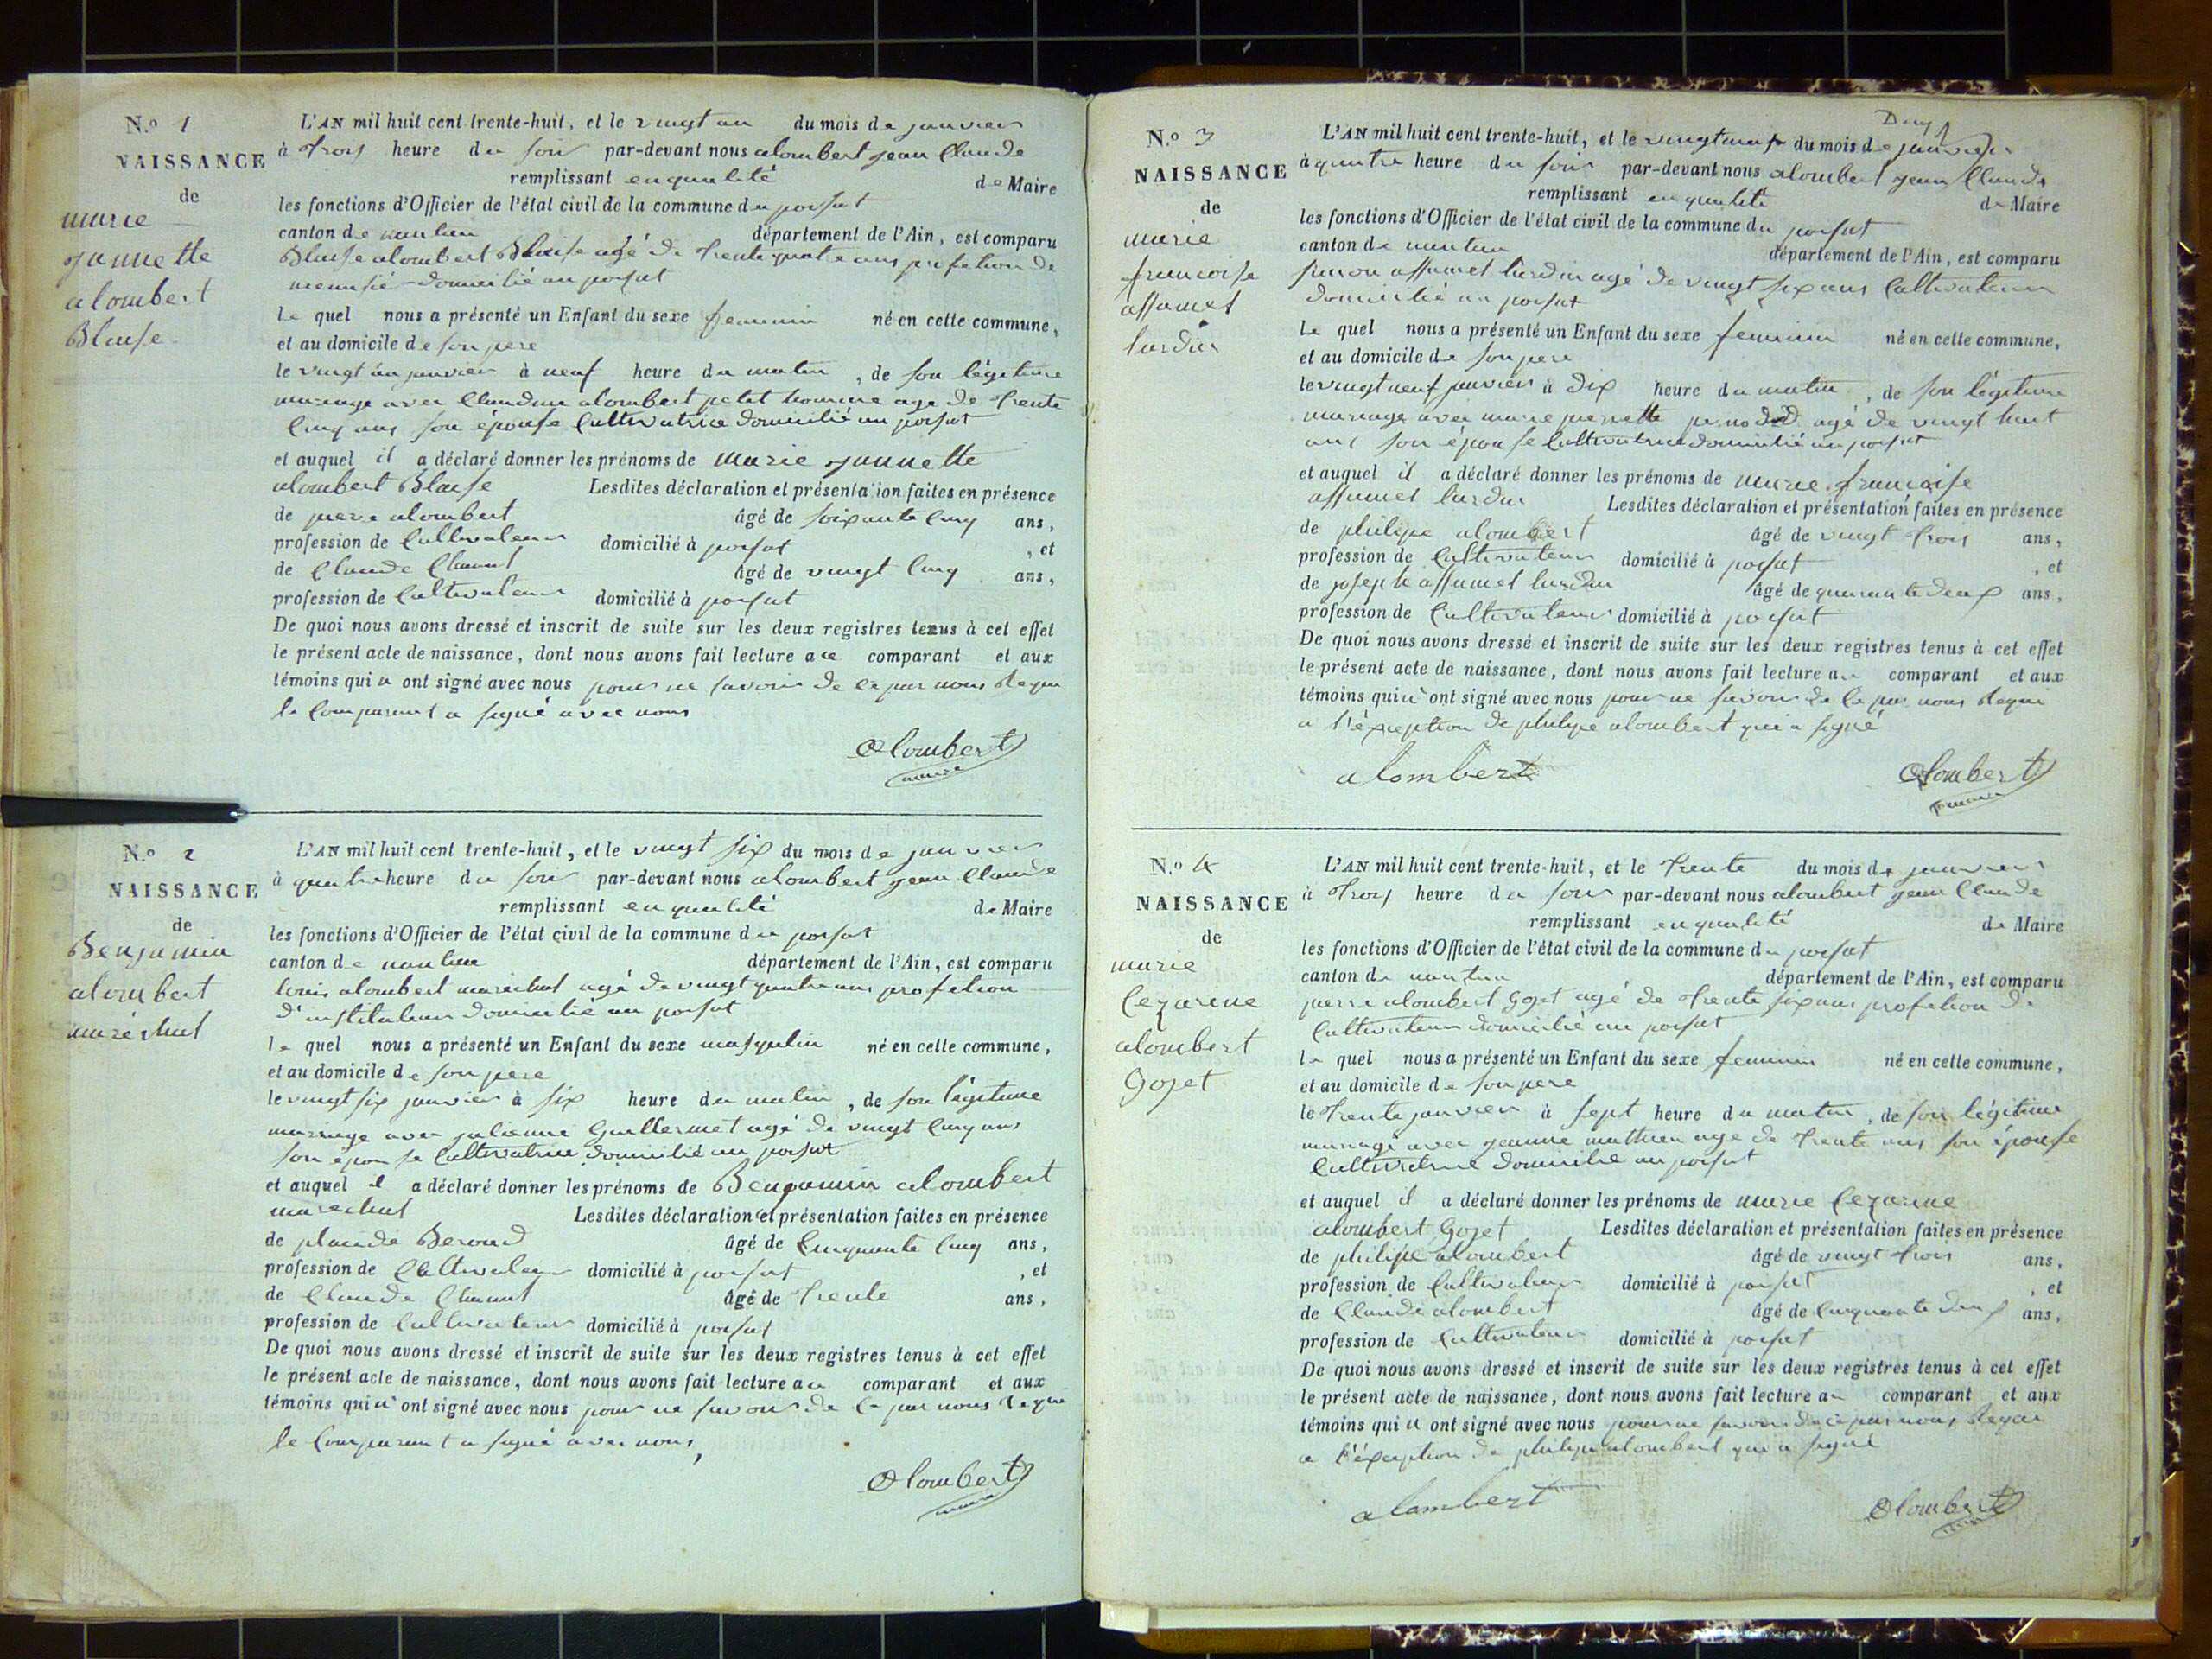 N.º 1
NAISSANCE
de
marie
jannette
alombert
Blaise
L'AN mil huit cent trente-huit, et le vingt un du mois de janvier
à trois heure du soir par-devant nous alombert jean Claude
remplissant en qualité de Maire
les fonctions d'Officier de l'état civil de la commune du poisat
canton de nantua département de l'Ain, est comparu
Blaise alombert Blaise agé de trente quatre ans profetion de
menusié domicilié au poisat
le quel nous a présenté un Enfant du sexe feminin né en cette commune,
et au domicile de son pere
le vingt un janvier à neuf heure du matin, de son légitime
mariage avec Claudine alombert petit homme age de trente
Cinq ans son épouse Cultivatrice domicilié au poisat
et auquel il a déclaré donner les prénoms de marie jannette
alombert Blaise Lesdites déclaration et présentation faites en présence
de pierre alombert âgé de soixante Cinq ans,
profession de Cultivateur domicilié à poisat, et
de Claude Chanut âgé de vingt Cinq ans,
profession de Cultivateur domicilié à poisat
De quoi nous avons dressé et inscrit de suite sur les deux registres tenus à cet effet
le présent acte de naissance, dont nous avons fait lecture au comparant et aux
témoins qui n ont signé avec nous pour ne savoir de ce par nous requi
le Comparant a signé avec nous
alombert
maire
N.º 2
NAISSANCE
de
Benjamin
alombert
maréchal
L'AN mil huit cent trente-huit, et le vingt six du mois de janvier
à quatre heure du soir par-devant nous alombert jean Claude
remplissant en qualité de Maire
les fonctions d'Officier de l'état civil de la commune du poisat
canton de nantua département de l'Ain, est comparu
louis alombert marechal agé de vingt quatre ans profetion
d'instituteur domicilié au poisat
le quel nous a présenté un Enfant du sexe masqulin né en cette commune,
et au domicile de son pere
le vingt six janvier à six heure du matin, de son légitime
mariage avec julienne Guillermet agé de vingt Cinq ans
son épouse Cultivatrice domicilié au poisat
et auquel il a déclaré donner les prénoms de Benjamin alombert
marechal Lesdites déclaration et présentation faites en présence
de plaude Beroud âgé de Cinquante Cinq ans,
profession de Cultivateur domicilié à poisat, et
de Claude Chanut âgé de trente ans,
profession de Cultivateur domicilié à poisat
De quoi nous avons dressé et inscrit de suite sur les deux registres tenus à cet effet
le présent acte de naissance, dont nous avons fait lecture au comparant et aux
témoins qui n'ont signé avec nous pour ne savoir de ce par nous requi
le Comparant a signé avec nous,
alombert
maire
N.º 3
NAISSANCE
de
marie
francoise
assumel
lurdin
L'AN mil huit cent trente-huit, et le vingt neuf du mois de janvier
à quatre heure du soir par-devant nous alombert jean Claude
remplissant en qualité de Maire
les fonctions d'Officier de l'état civil de la commune du poisat
canton de nantua département de l'Ain, est comparu
simon assumel lurdin agé de vingt six ans Cultivateur
domicilié au poisat
le quel nous a présenté un Enfant du sexe feminin né en cette commune,
et au domicile de son pere
le vingt neuf janvier à dix heure du matin, de son légitime
mariage avec marie pierrette agé de vingt huit
ans son épouse Cultivatrice domicilié au poisat
et auquel il a déclaré donner les prénoms de marie francoise
assumel lurdin Lesdites déclaration et présentation faites en présence
de philipe alombert âgé de vingt trois ans,
profession de Cultivateur domicilié à poisat, et
de joseph assumel lurdin âgé de quarante deux ans,
profession de Cultivateur domicilié à poisat
De quoi nous avons dressé et inscrit de suite sur les deux registres tenus à cet effet
le présent acte de naissance, dont nous avons fait lecture au comparant et aux
témoins qui n'ont signé avec nous pour ne savoir de ce par nous requi
a l'éxception de philipe alombert qui a signé
alombert alombert
maire
N.º 4
NAISSANCE
de
marie
Cezarine
alombert
Gojet
L'AN mil huit cent trente-huit, et le trente du mois de janvier
à trois heure du soir par-devant nous alombert jean Claude
remplissant en qualité de Maire
les fonctions d'Officier de l'état civil de la commune du poisat
canton de nantua département de l'Ain, est comparu
pierre alombert Gojet agé de trente six ans profetion de
Cultivateur domicilié au poisat
le quel nous a présenté un Enfant du sexe feminin né en cette commune,
et au domicile de son pere
le trente janvier à sept heure du matin, de son légitime
mariage avec jeanne mathieu age de trente ans son épouse
Cultivatrice domicilié au poisat
et auquel il a déclaré donner les prénoms de marie Cezarine
alombert Gojet Lesdites déclaration et présentation faites en présence
de philipe alombert âgé de vingt trois ans,
profession de Cultivateur domicilié à poisat, et
de Claude alombert âgé de Cinquante deux ans,
profession de Cultivateur domicilié à poisat
De quoi nous avons dressé et inscrit de suite sur les deux registres tenus à cet effet
le présent acte de naissance, dont nous avons fait lecture au comparant et aux
témoins qui n ont signé avec nous pour ne savoir de ce par nous requi
a l'éxception de philipe alombert qui a signé
alombert alombert